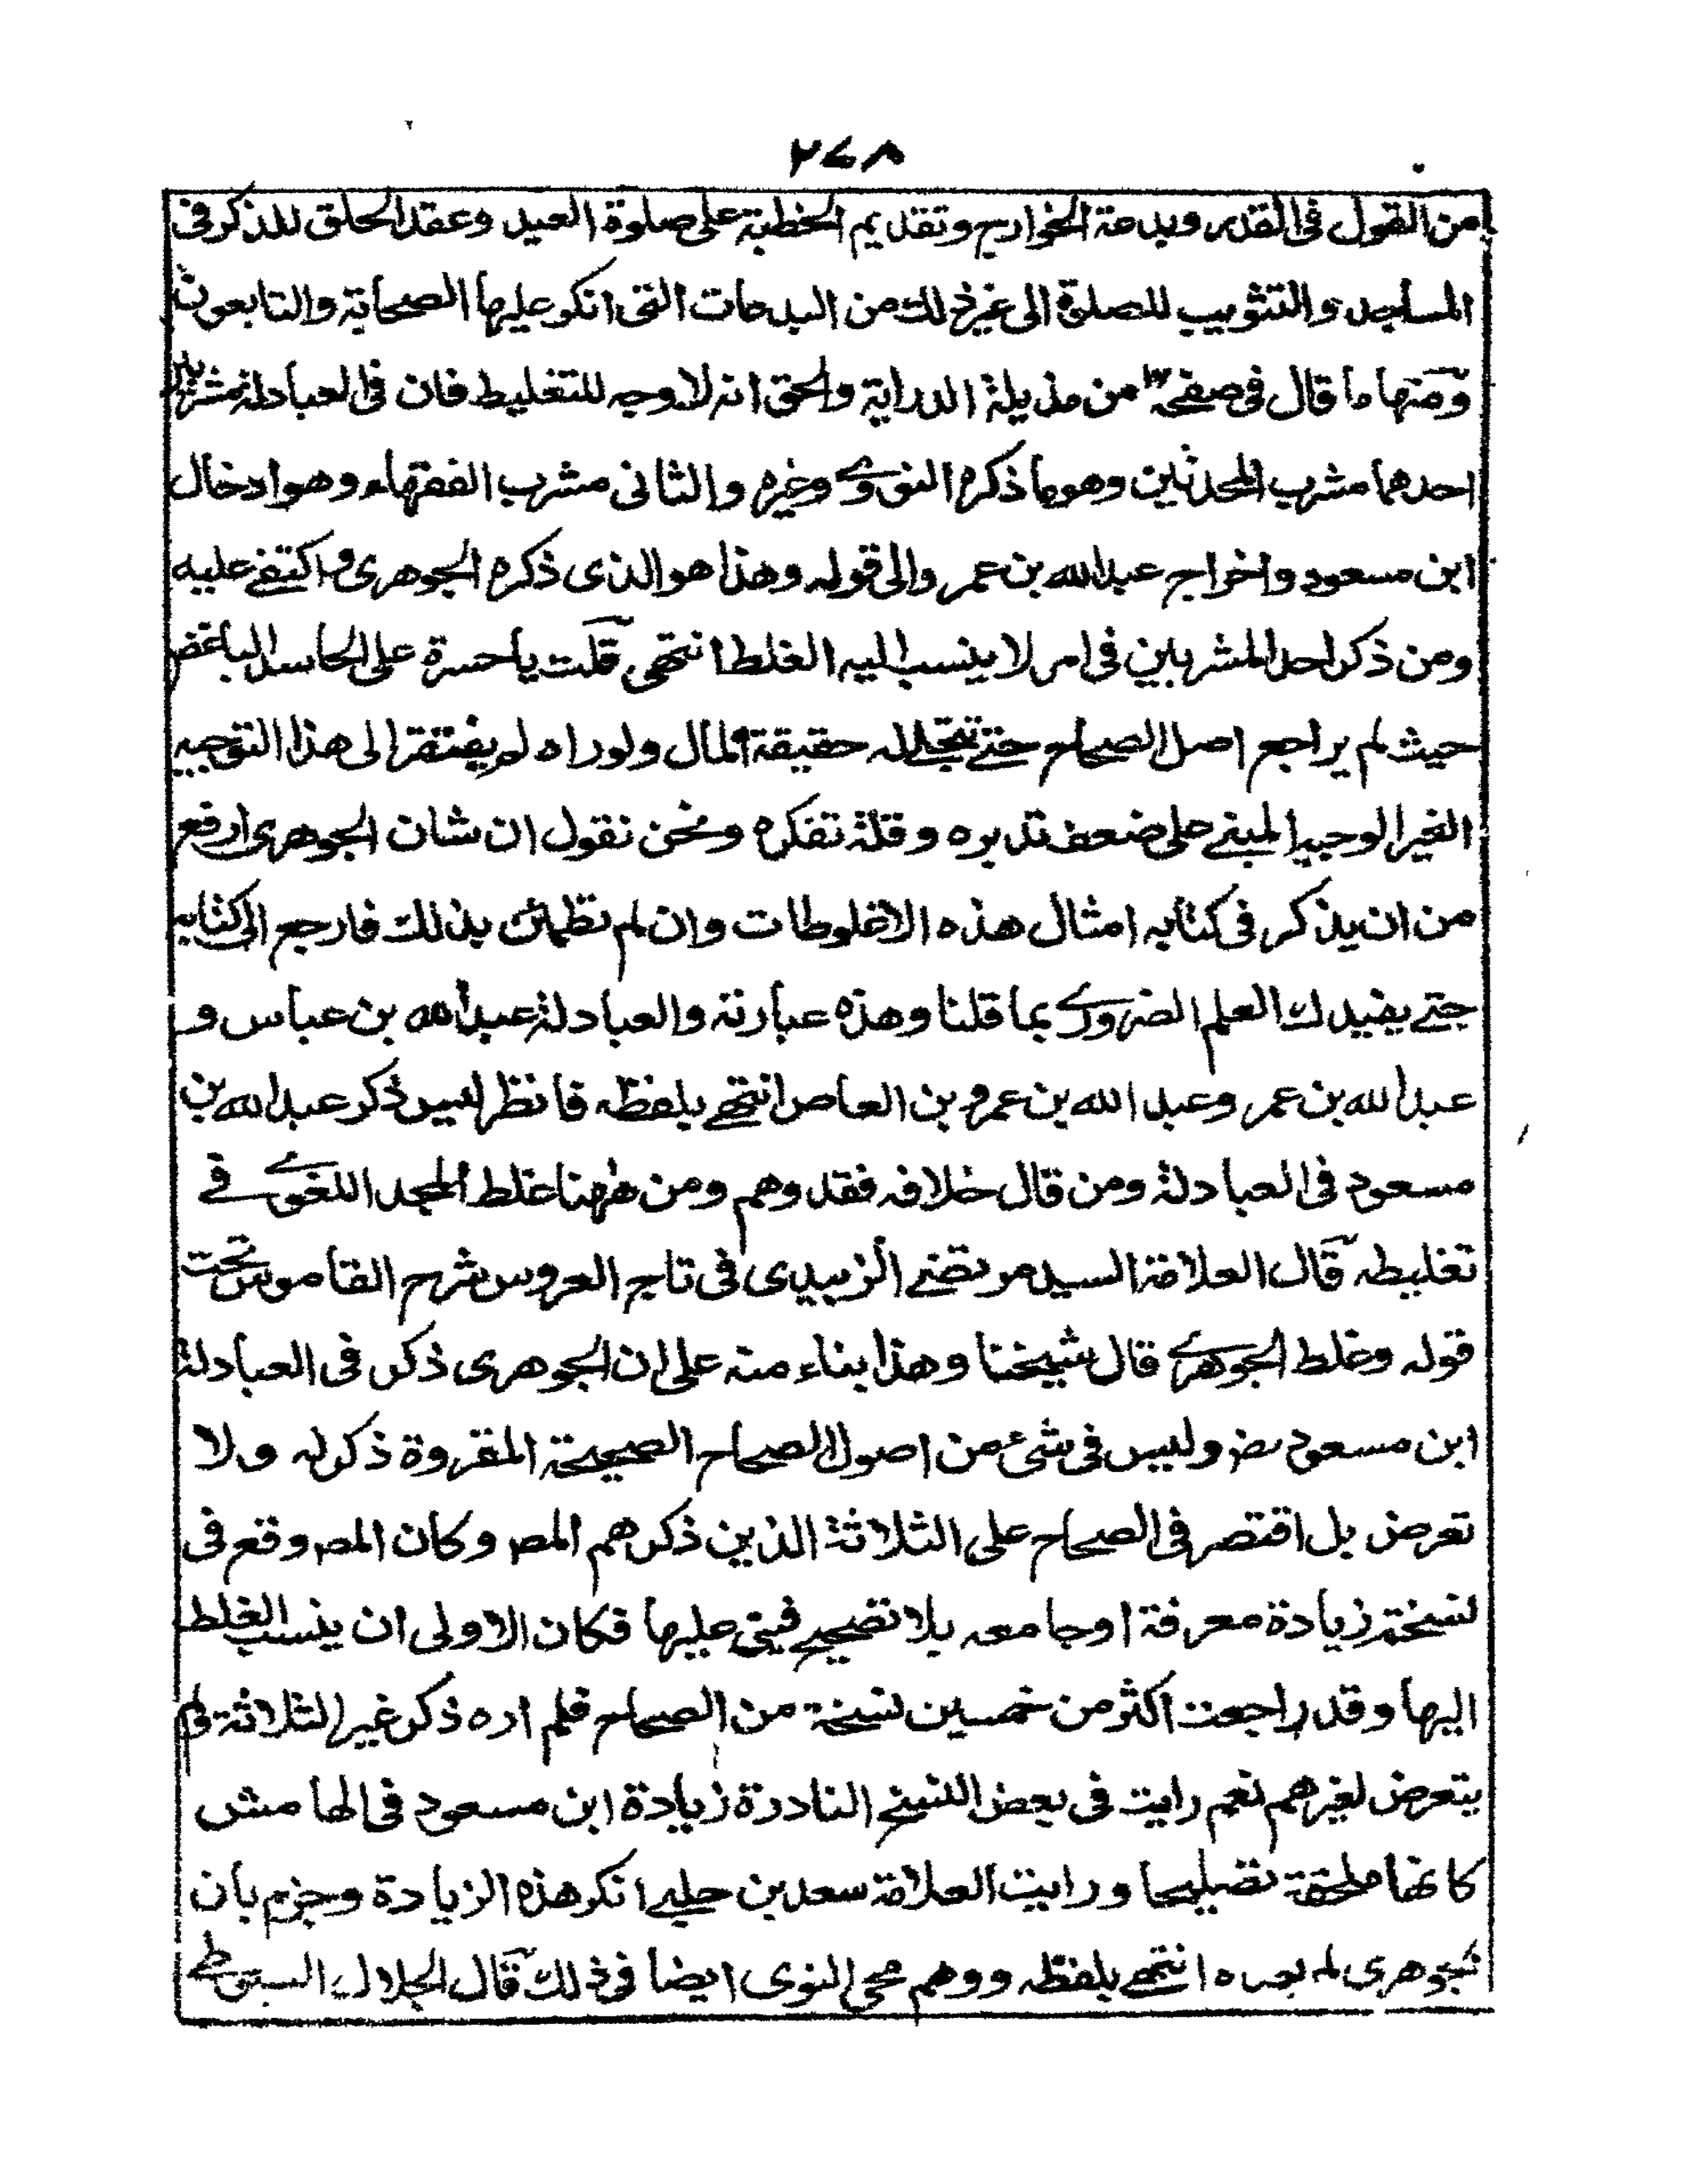 ٢٧٨
من القول فى القدر وبدعة الخوارج وتقديم الخطبة على صلوة العيد وعقد الحلق للذكر فى
المساجد والتثويب للصلوة الى غير ذلك من البدعات التى انكر عليها الصحابة والتابعون
ومنها ما قال فى صفحة من مذيلة الدراية والحق انه لا وجه للتغليط فان فى العبادلة مشربين
احدهما مشرب المحدثين وهو ما ذكره النووى وغيره والثانى مشرب الفقهاء وهو ادخال
ابن مسعود واخراج عبد الله بن عمر والى قوله وهذا هو الذى ذكره الجوهرى واكتفى عليه
ومن ذكر احد المشربين فى امر لا ينسب اليه الغلط انتهى قلت يا حسرة على الحاسد الباغض
حيث لم يراجع اصل الصحاح حتى تتجلى له حقيقة المال ولو راه لم يفتقر الى هذا التوجيه
الغير الوجيه المبنى على ضعف تدبره وقلة تفكره ونحن نقول ان شان الجوهرى ارفع
من ان يذكر فى كتابه امثال هذه الاغلوطات وان لم تطمئن بذلك فارجع الى كتابه
حتى يفيدك العلم الضرورى بما قلنا وهذه عبارته والعبادلة عبد الله بن عباس و
عبد الله بن عمر وعبد الله بن عمرو بن العاص انتهى بلفظه فانظر ليس ذكر عبد الله بن
مسعود فى العبادلة ومن قال خلافه فقد وهم ومن ههنا غلط المجد اللغوى فى
تغليطه قال العلامة السيد مرتضى الزبيدى فى تاج العروس شرح القاموس تحت
قوله وغلط الجوهرى قال شيخنا وهذا بناء منه على ان الجوهرى ذكر فى العبادلة
ابن مسعود رض وليس فى شئ من اصول الصحاح الصحيحة المقروة ذكر له ولا
تعرض بل اقتصر فى الصحاح على الثلاثة الذين ذكرهم المص وكان المص وقع فى
نسخته زيادة معرفة او جامعه بلا تصحيح فبنى عليها فكان الاولى ان ينسب الغلط
اليها وقد راجعت اكثر من خمسين نسخة من الصحاح فلم اره ذكر غير الثلاثة ولم
يتعرض لغيرهم نعم رايت فى بعض النسخ النادرة زيادة ابن مسعود فى الهامش
كانها ملحقة تصليحا ورايت العلامة سعد بن حلبى انكر هذه الزيادة وجزم بان
الجوهرى لم يعده انتهى بلفظه ووهم محى النوى ايضا فى ذلك قال الجلال السيوطى